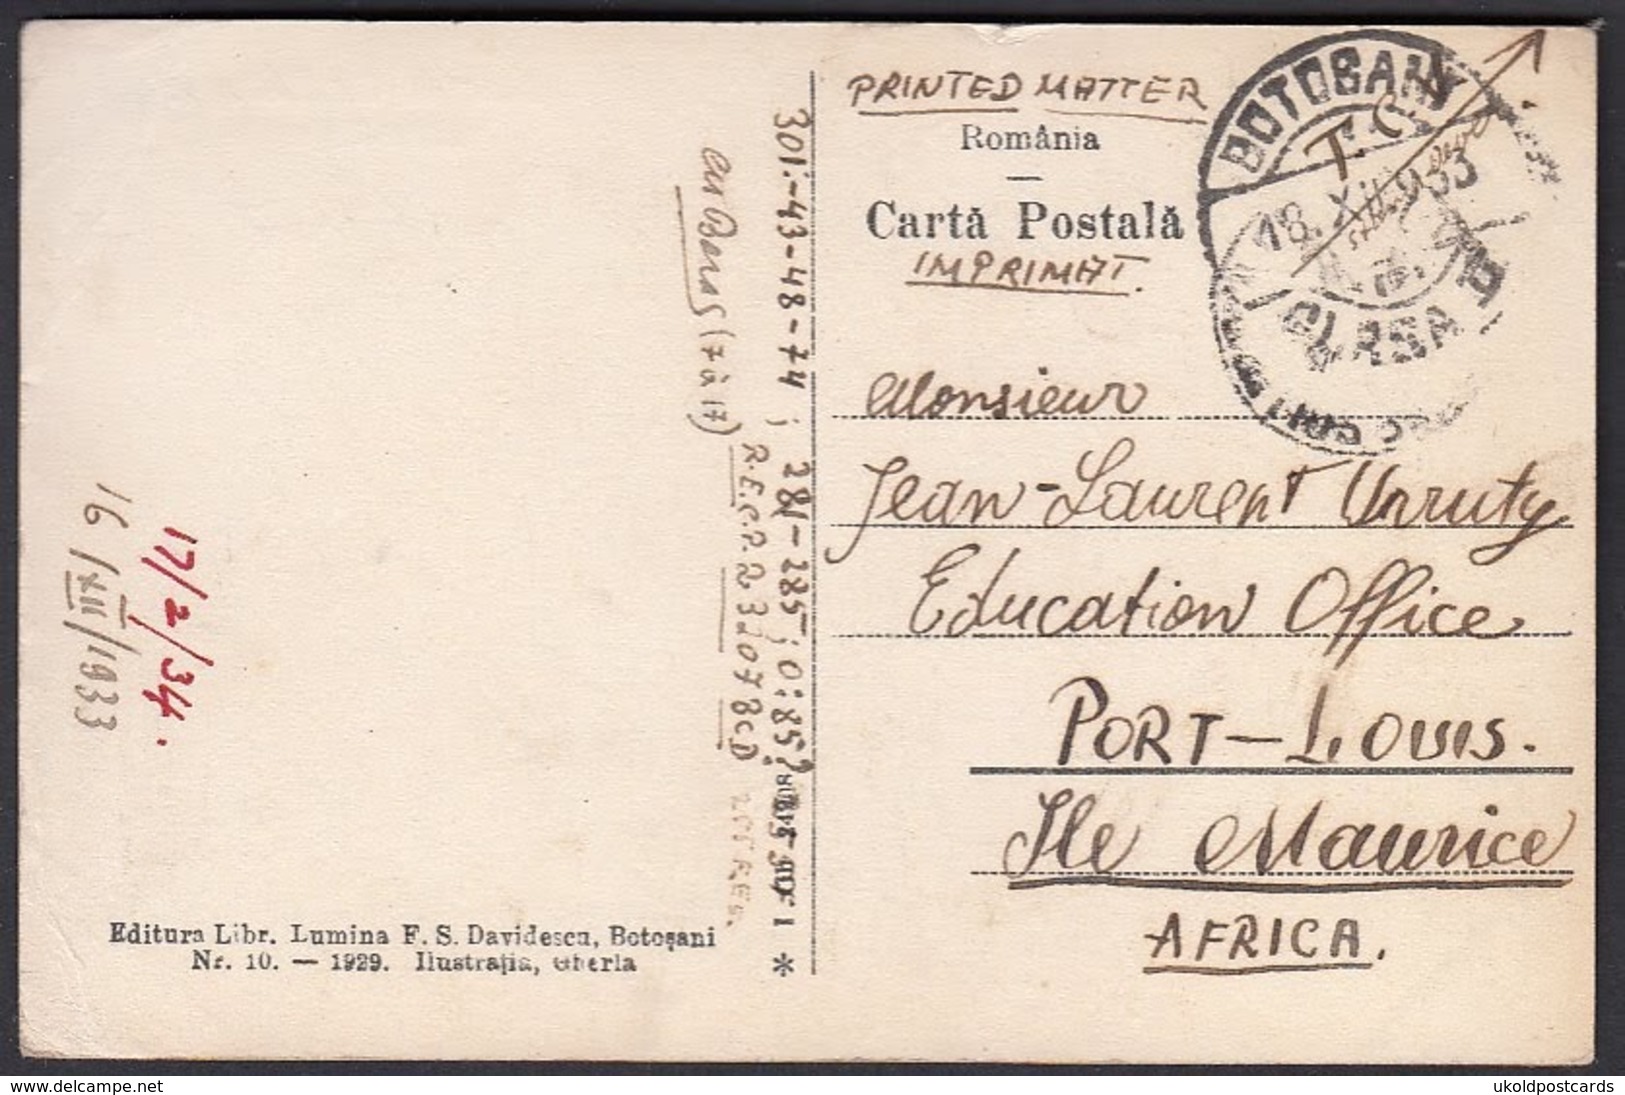 PRINTED MATTER
România
Cartă Postală
IMPRIMAT.
BOTOSANI
T.C.V.
18. XII 933
Monsieur
Jean-Laurent Urruty
Education Office
PORT-LOUIS.
Ile Maurice
AFRICA.
301:-43-48-74;
(7 à 17)
16/XII/1933
17/2/34.
Editura Libr. Lumina F. S. Davidescu, Botoşani
Nr. 10. — 1929. Ilustraţia, Gherla
*
delcampe.net
ukoldpostcards